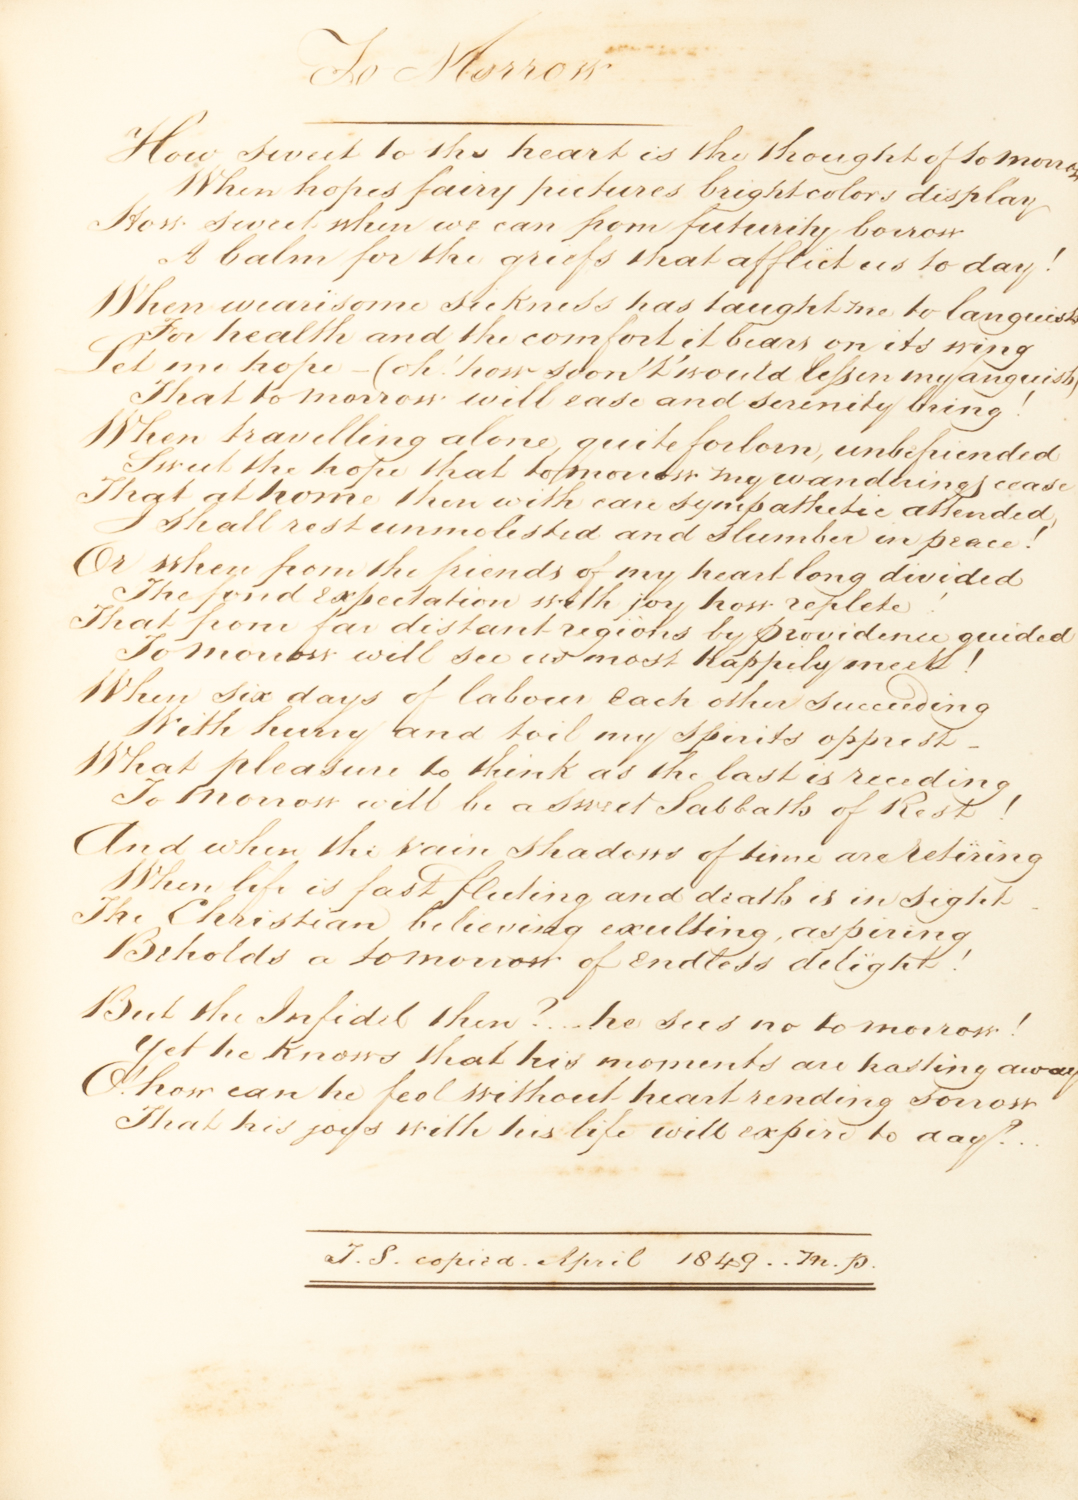 To Morrow
How sweet to the heart is the thought of to morrow
When hopes fairy pictures bright colors display
How sweet when we can from futurity borrow
A balm for the griefs that afflict us to day!
When wearisome sickness has taught me to languish
For health and the comfort it bears on its wing
Let me hope – (oh! how soon 't would lessen my anguish)
That to morrow will ease and serenity bring!
When travelling alone, quite forlorn, unbefriended
Sweet the hope that to morrow my wanderings cease
That at home then with care sympathetic attended,
I shall rest unmolested and slumber in peace!
Or when from the friends of my heart long divided
The fond expectation with joy how replete!
That from far distant regions by providence guided
To Morrow will see us most happily meet!
When six days of labour each other succeeding
With hurry and toil my spirits opprest –
What pleasure to think as the last is receding
To Morrow will be a sweet Sabbath of Rest!
And when the vain shadows of time are retiring
When life is fast fleeting and death is in sight –
The Christian believing exulting, aspiring
Beholds a to morrow of endless delight!
But the Infidel then?... he sees no to morrow!
Yet he knows that his moments are hasting away
O! how can he feel without heart rending sorrow
That his joys with his life will expire to day?...
T. S. copied. April 1849.. M. P.